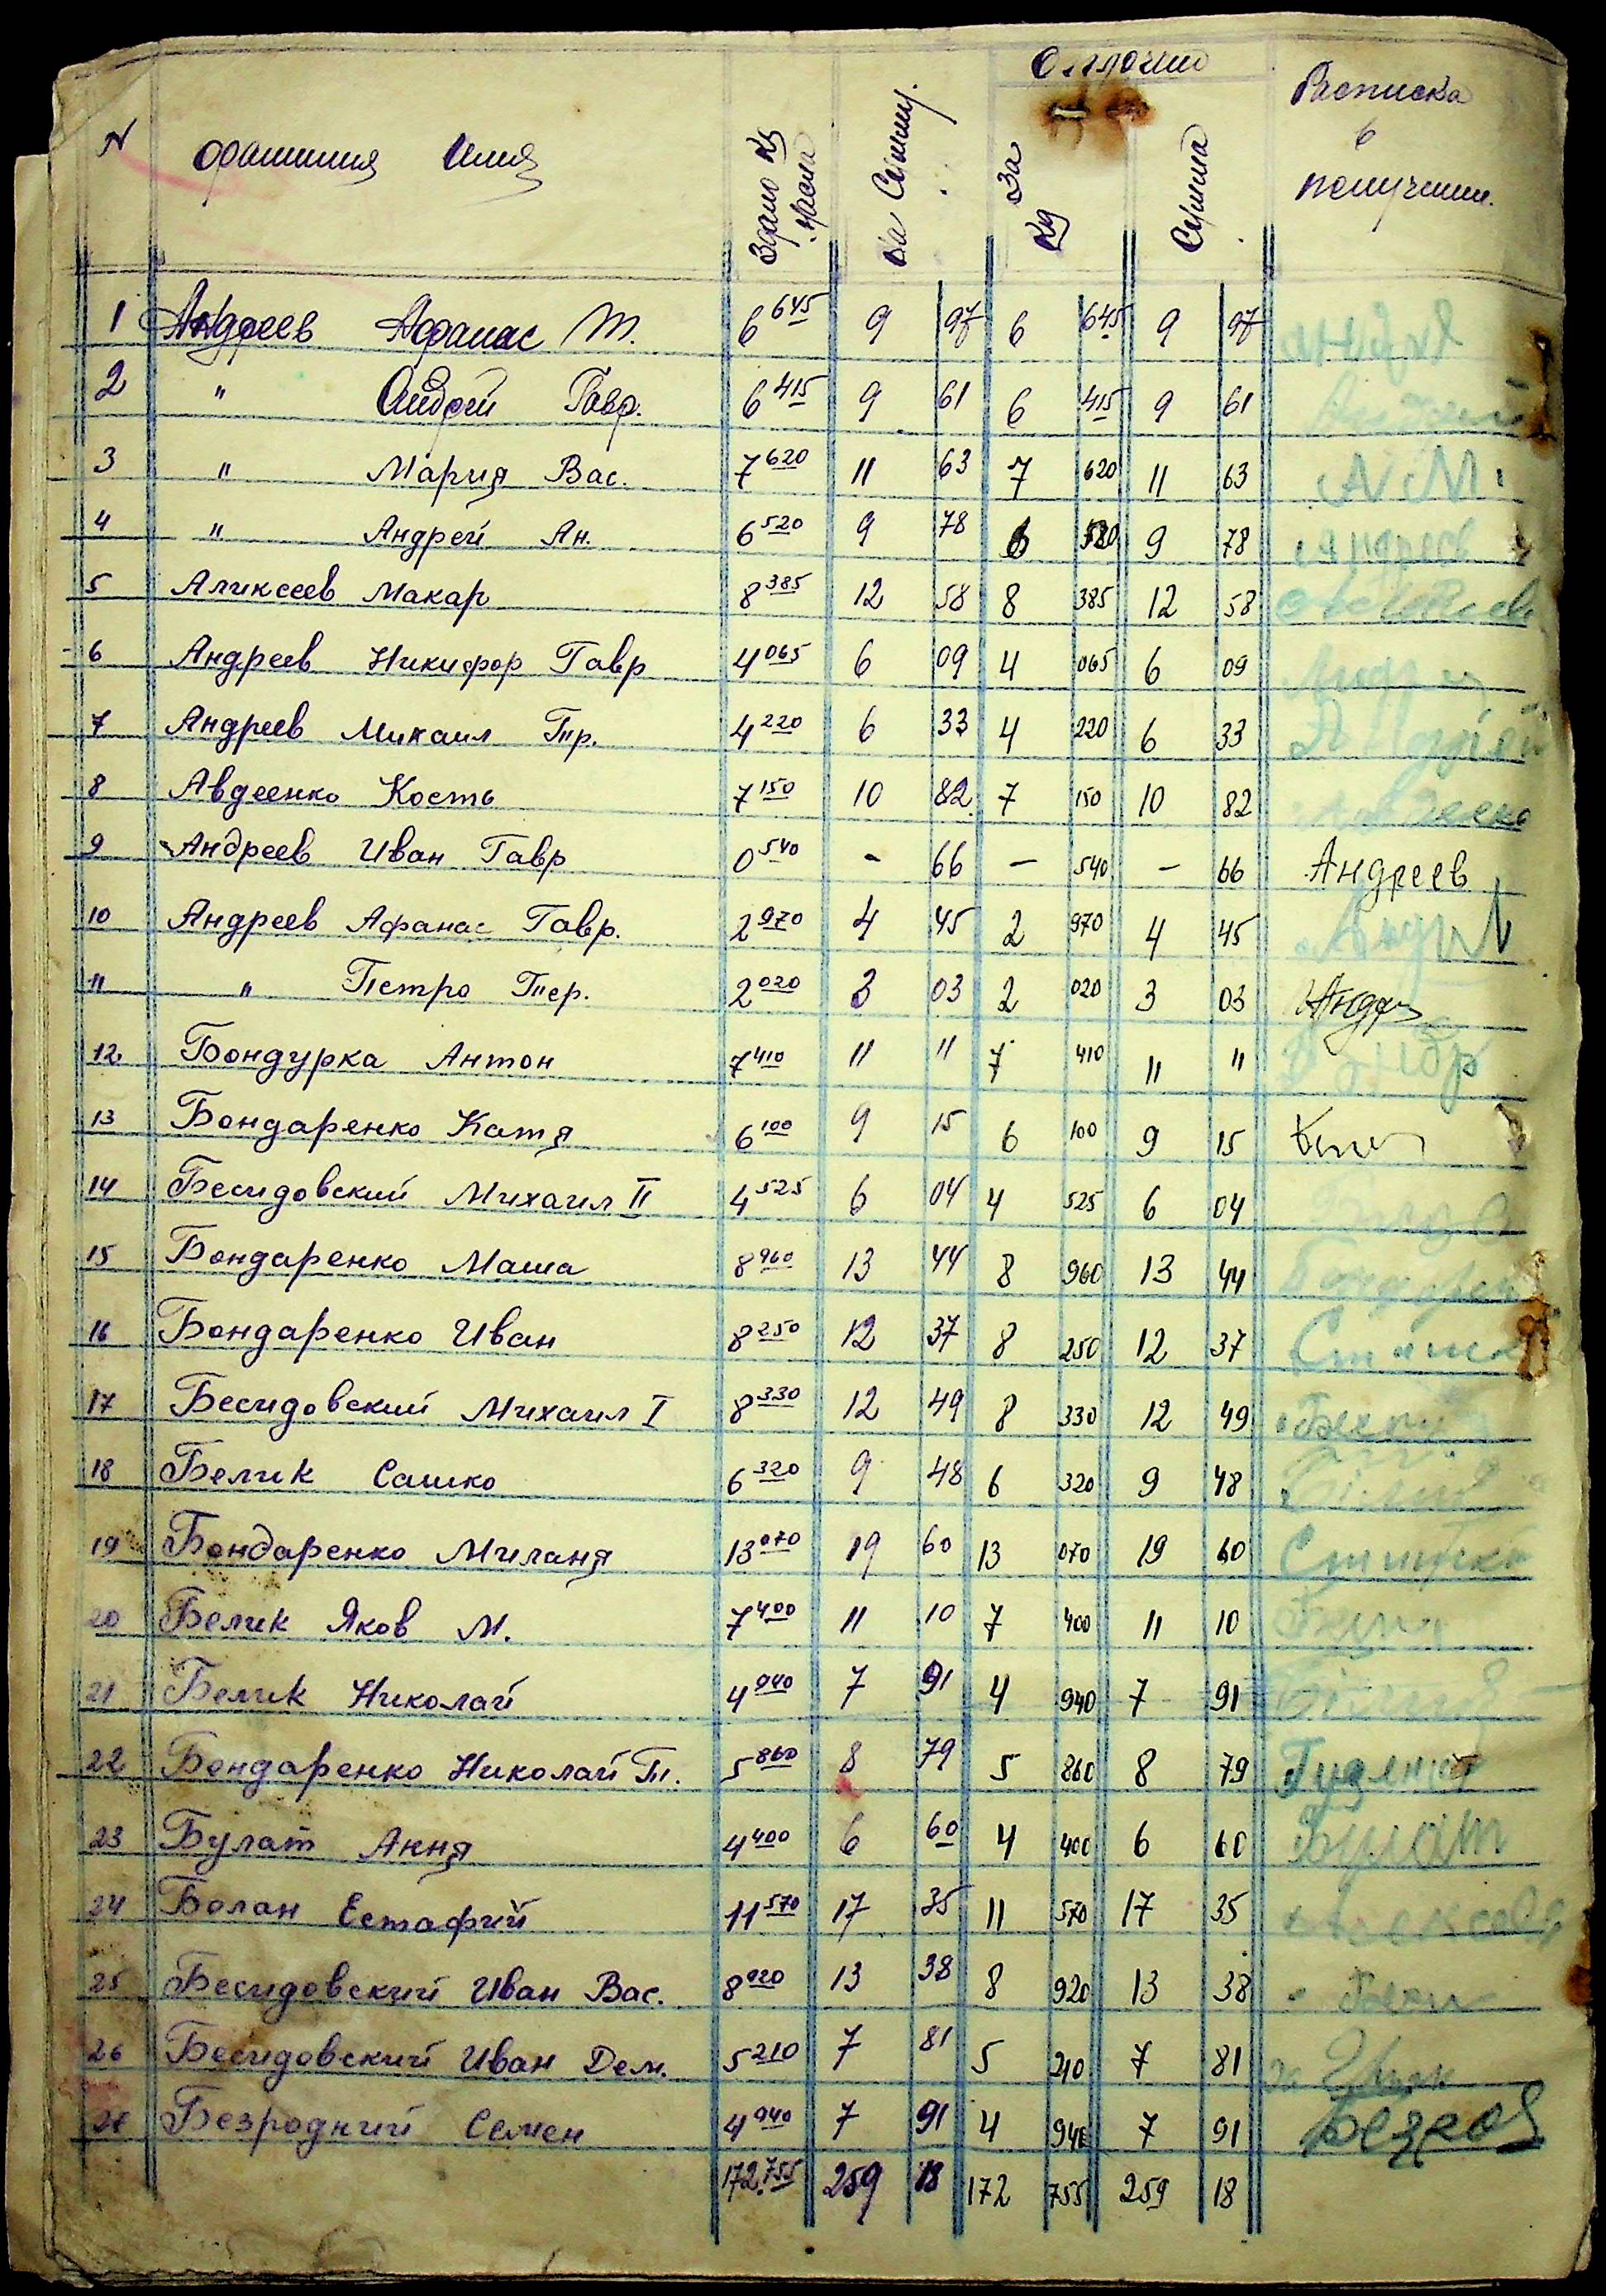 Оплочино
N фамилия Имя Здано кг масла На Сумму За кг Сумма Расписка в получении.
1 Андреев Афанас Т. 6 645 9 97 6 645 9 97
2 " Андрей Гавр. 6 415 9 61 6 415 9 61
3 " Мария Вас. 7 620 11 63 7 620 11 63 А М.
4 " Андрей Ан. 6 520 9 78 6 520 9 78 Андреев
5 Аликсеев Макар 8 385 12 58 8 385 12 58
6 Андреев Никифор Гавр 4 065 6 09 4 065 6 09
7 Андреев Михаил Тр. 4 220 6 33 4 220 6 33
8 Авдеенко Кость 7 150 10 82 7 150 10 82
9 Андреев Иван Гавр 0 540 - 66 - 540 - 66 Андреев
10 Андреев Афанас Гавр. 2 970 4 45 2 970 4 45
11 " Петро Тер. 2 020 3 03 2 020 3 03
12. Бондурка Антон 7 410 11 11 7 410 11 11
13 Бондаренко Катя 6 100 9 15 6 100 9 15
14 Бесидовский Михаил II 4 525 6 04 4 525 6 04
15 Бондаренко Маша 8 960 13 44 8 960 13 44
16 Бондаренко Иван 8 250 12 37 8 250 12 37
17 Бесидовский Михаил I 8 330 12 49 8 330 12 49
18 Белик Сашко 6 320 9 48 6 320 9 48
19 Бондаренко Миланя 13 070 19 60 13 070 19 60
20 Белик Яков М. 7 400 11 10 7 400 11 10
21 Белик Николай 4 940 7 91 4 940 7 91
22 Бондаренко Николай Т. 5 860 8 79 5 860 8 79
23 Булат Ання 4 400 6 60 4 400 6 60 Булат
24 Болан Естафий 11 570 17 35 11 570 17 35
25 Бесидовский Иван Вас. 8 920 13 38 8 920 13 38
26 Бесидовский Иван Дем. 5 210 7 81 5 210 7 81
27 Безродний Семен 4 940 7 91 4 940 7 91
172.755 259 18 172 755 259 18